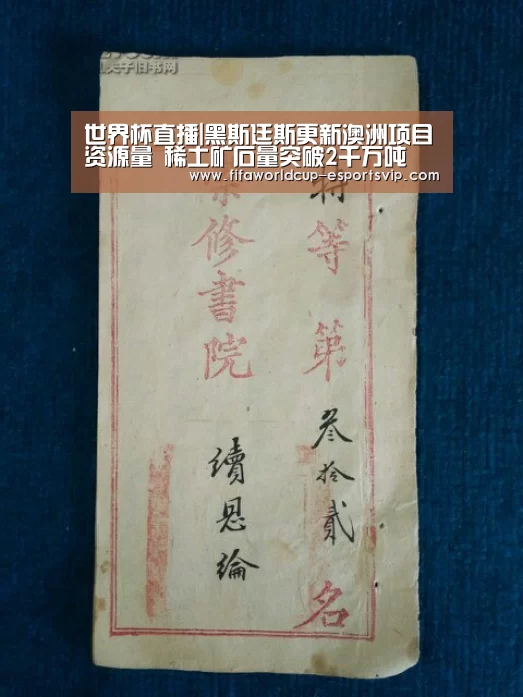 天于旧书网
世界杯直播|黑斯廷斯更新澳洲项目
资源量 稀土矿石量突破2千万吨
www.fifaworldcup-esportsvip.com
特等第叁拾贰名
修書院
續恩綸